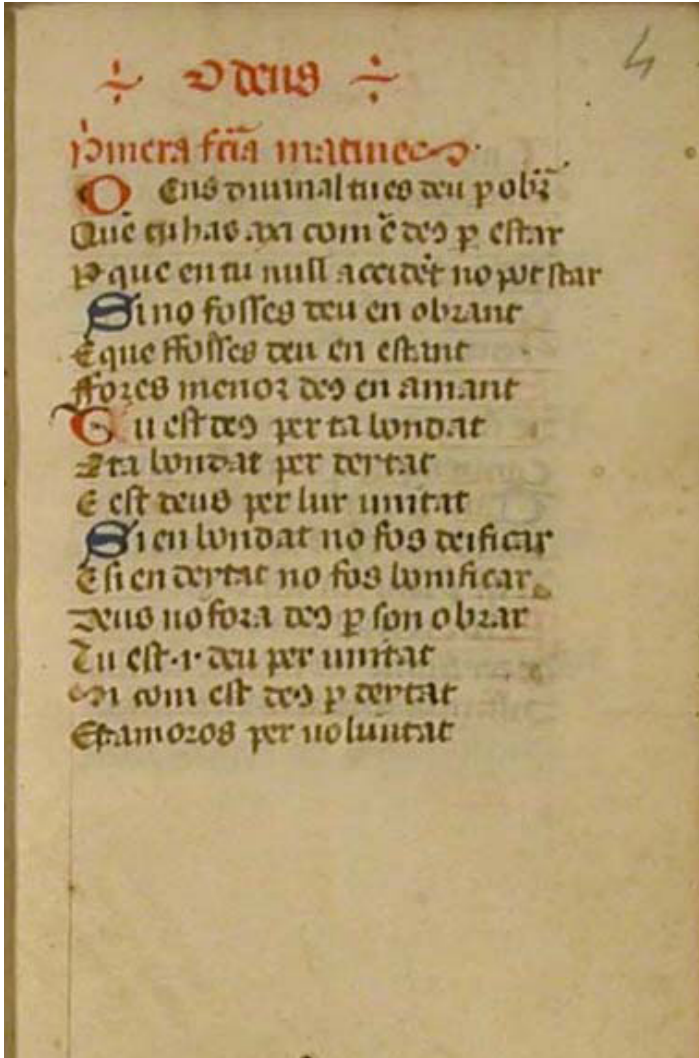 D deus
Pimera fc̃ia matines
O Ens diuinal tu es deu ꝑ obr̃
Que tu has axi com ẽ deꝯ ꝑ estar
P que en tu null accidẽt no pot star
Si no fosses deu en obrant
E que ffosses deu en estant
ffores menor deꝯ en amant
Tu est deꝯ per ta bondat
E ta bondat per deitat
E est deus per lur unitat
Si en bondat no fos deificar
E si en deitat no fos bonificar
Deus no fora deꝯ ꝑ son obrar
Tu est .i. deu per unitat
Si com est deꝯ ꝑ deitat
Estamoros per uoluntat